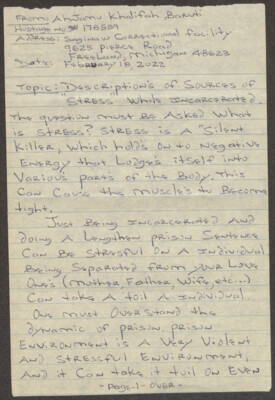 From: Ahjamu Khalifah Baruti
Hostage no# 178554
Address: Saginaw Correctional facility
9625 Pierce Road
Freeland, Michigan 48623
Date: February 18, 2022
Topic: Description's of Sources of
Stress While Incarcerated.
The question must be Asked What
is Stress? Stress is A "Silent
Killer, Which holds on to Negative
Energy that Lodge's itself into
Various parts of the Body. This
Can Caus the muscle's to Become
tight.
Just Being Incarcerated And
doing A Lengthen prison Sentence
Can Be Stressful On A individual
Being Separated from your Love
One's (mother, Father, Wife, etc...)
Can take A toil A Individual.
One must Overstand the
dynamic of prison. prison
Environment is A Very Violent
And Stressful Environment,
And it Can take it toil On Even
-Page-1-Over-